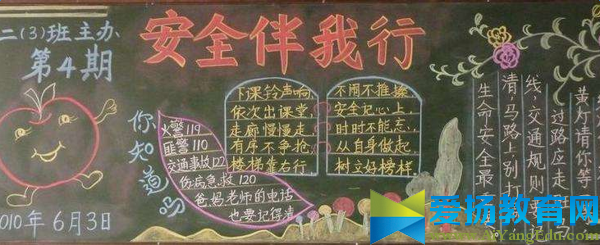 二(3)班主办
第4期
2010年6月3日
安全伴我行
你知道吗
火警119
匪警110
交通事故122
伤病急救120
爸妈老师的电话
也要记得清
下课铃声响
依次出课堂,
走廊慢慢走
有序不争抢,
楼梯靠右行
不闹不推搡
安全记心上,
时时不能忘,
从自身做起,
树立好榜样
黄灯请你等
过路应走
线,交通规则要
清,马路上别打
生命安全最
爱扬教育网
www.AiYangEdu.com